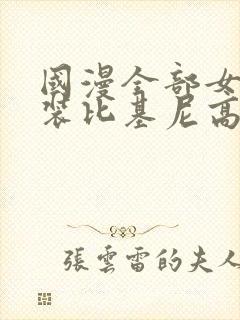 國漫全部女
裝比基尼高
張雲雷的夫人